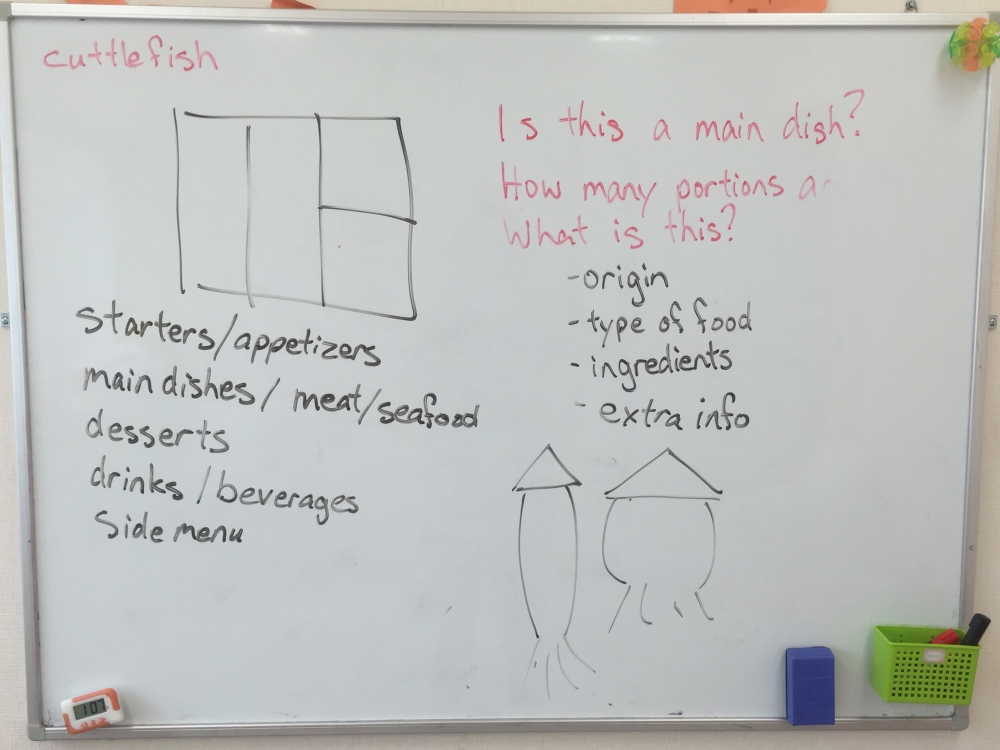 cuttlefish
Is this a main dish?
How many portions a
What is this?
-origin
-type of food
-ingredients
-extra info
starters/appetizers
main dishes/ meat/seafood
desserts
drinks/beverages
Side menu